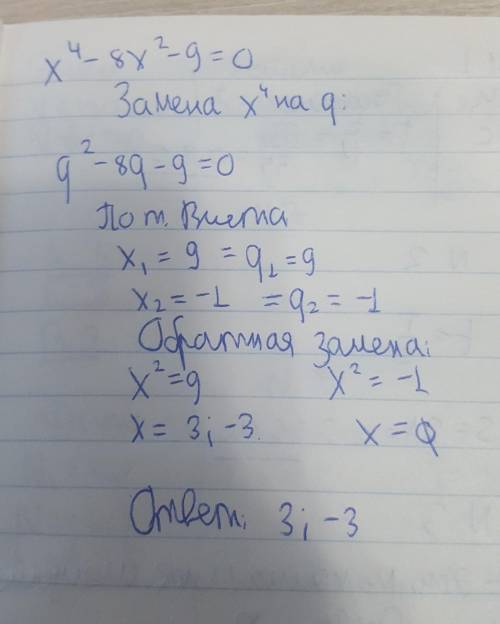 x⁴ - 8x² - 9 = 0
Замена x⁴ на q:
q² - 8q - 9 = 0
По т. Виета
x₁ = 9 = q₁ = 9
x₂ = -1 = q₂ = -1
Обратная замена:
x² = 9 x² = -1
x = 3; -3 x = ∅
Ответ: 3; -3